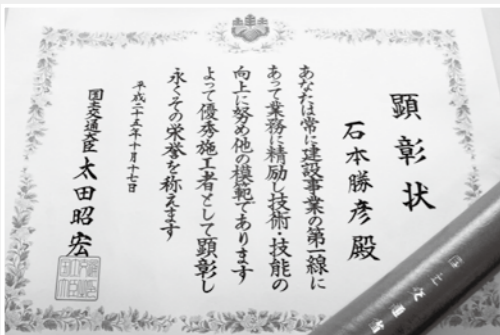 顕彰状
石本勝彦殿
あなたは常に建設事業の第一線に
あって業務に精励し技術・技能の
向上に努め他の模範であります
よって優秀施工者として顕彰し
永くその栄誉を称えます
平成二十五年十月十七日
国土交通大臣 太田昭宏
国土交通省